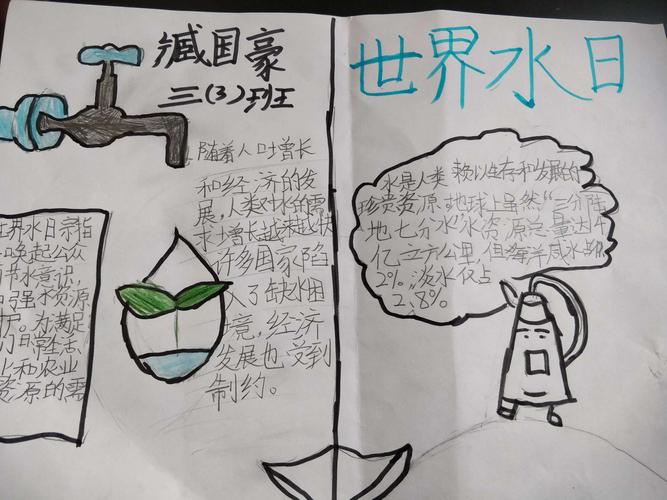 世界水日
臧国豪
三(3)班
随着人口增长
和经济的发
展,人类对水的需
求增长越来越快
许多国家陷
入了缺水困
境,经济
发展也受到
制约。
界水日宗指
唤起公众
节水意识
强水资源
护。为满足
们日常生活、
业和农业
资源的需
水是人类 赖以生存和发展的
珍贵资源.地球上虽然“三分陆
地七分水”水资源总量达
亿立方公里,但海洋咸水占
2%淡水仅占
2.8%